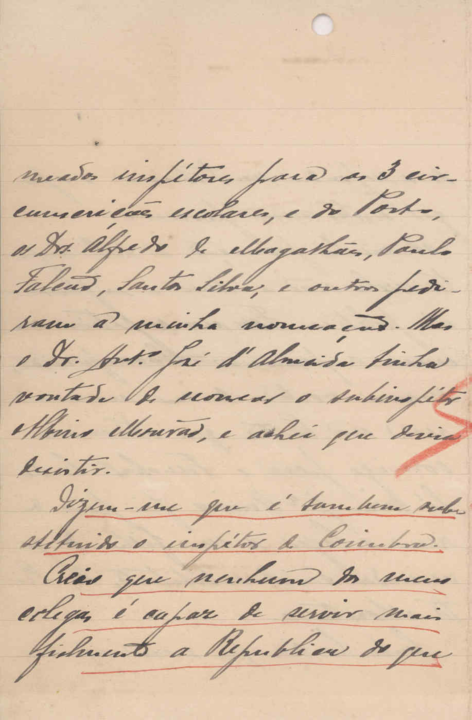 meados inspétores para as 3 cir-
cunscrições escolares, e do Porto,
os Drs. Alfredo de Magalhães, Paulo
Falcão, Santos Silva, e outros pedi-
ram a minha nomeação. Mas
o Dr. Antº José d'Almeida tinha
vontade de nomear o subinspétor
Albino Mourão, e achei que devia
desistir.
Dizem-me que é tambem subs
stituido o inspétor de Coimbra.
Creio que nenhum dos meus
colegas é capaz de servir mais
fielmente a Republica do que